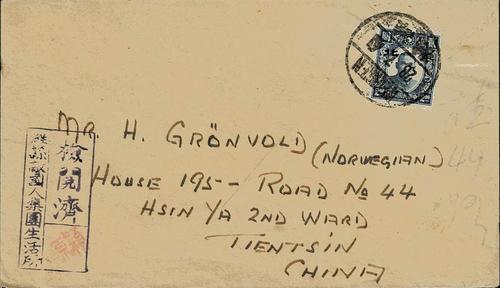 MR. H. GRÖNVOLD (NORWEGIAN)
HOUSE 195 - ROAD No 44
HSIN YA 2ND WARD
TIENTSIN
CHINA
檢開濟
濰縣敵國人集團生活所